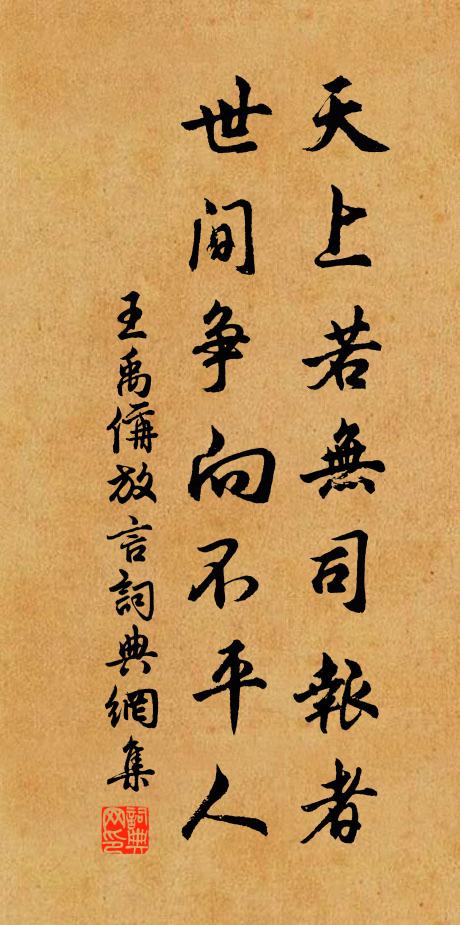 天上若無司報者
世间争向不平人
王禹偁放言詞典網集
詞典網印